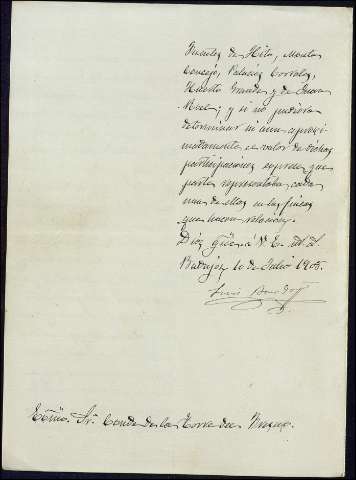 Fuentes de Hito, Monte
Concejo, Palacios Corrales,
Huerta Grande y de Juan
; y si no pudiera
determinar ni aun aproxi
madamente el valor de dichas
participaciones exprese que
parte representaba cada
una de ellas en las fincas
que hacen relación.
Dios gûe á V. E. m. a.
Badajoz 10 de Julio 1905.
Luis
Exmo. Sr. Conde de la Torre del Fresno.